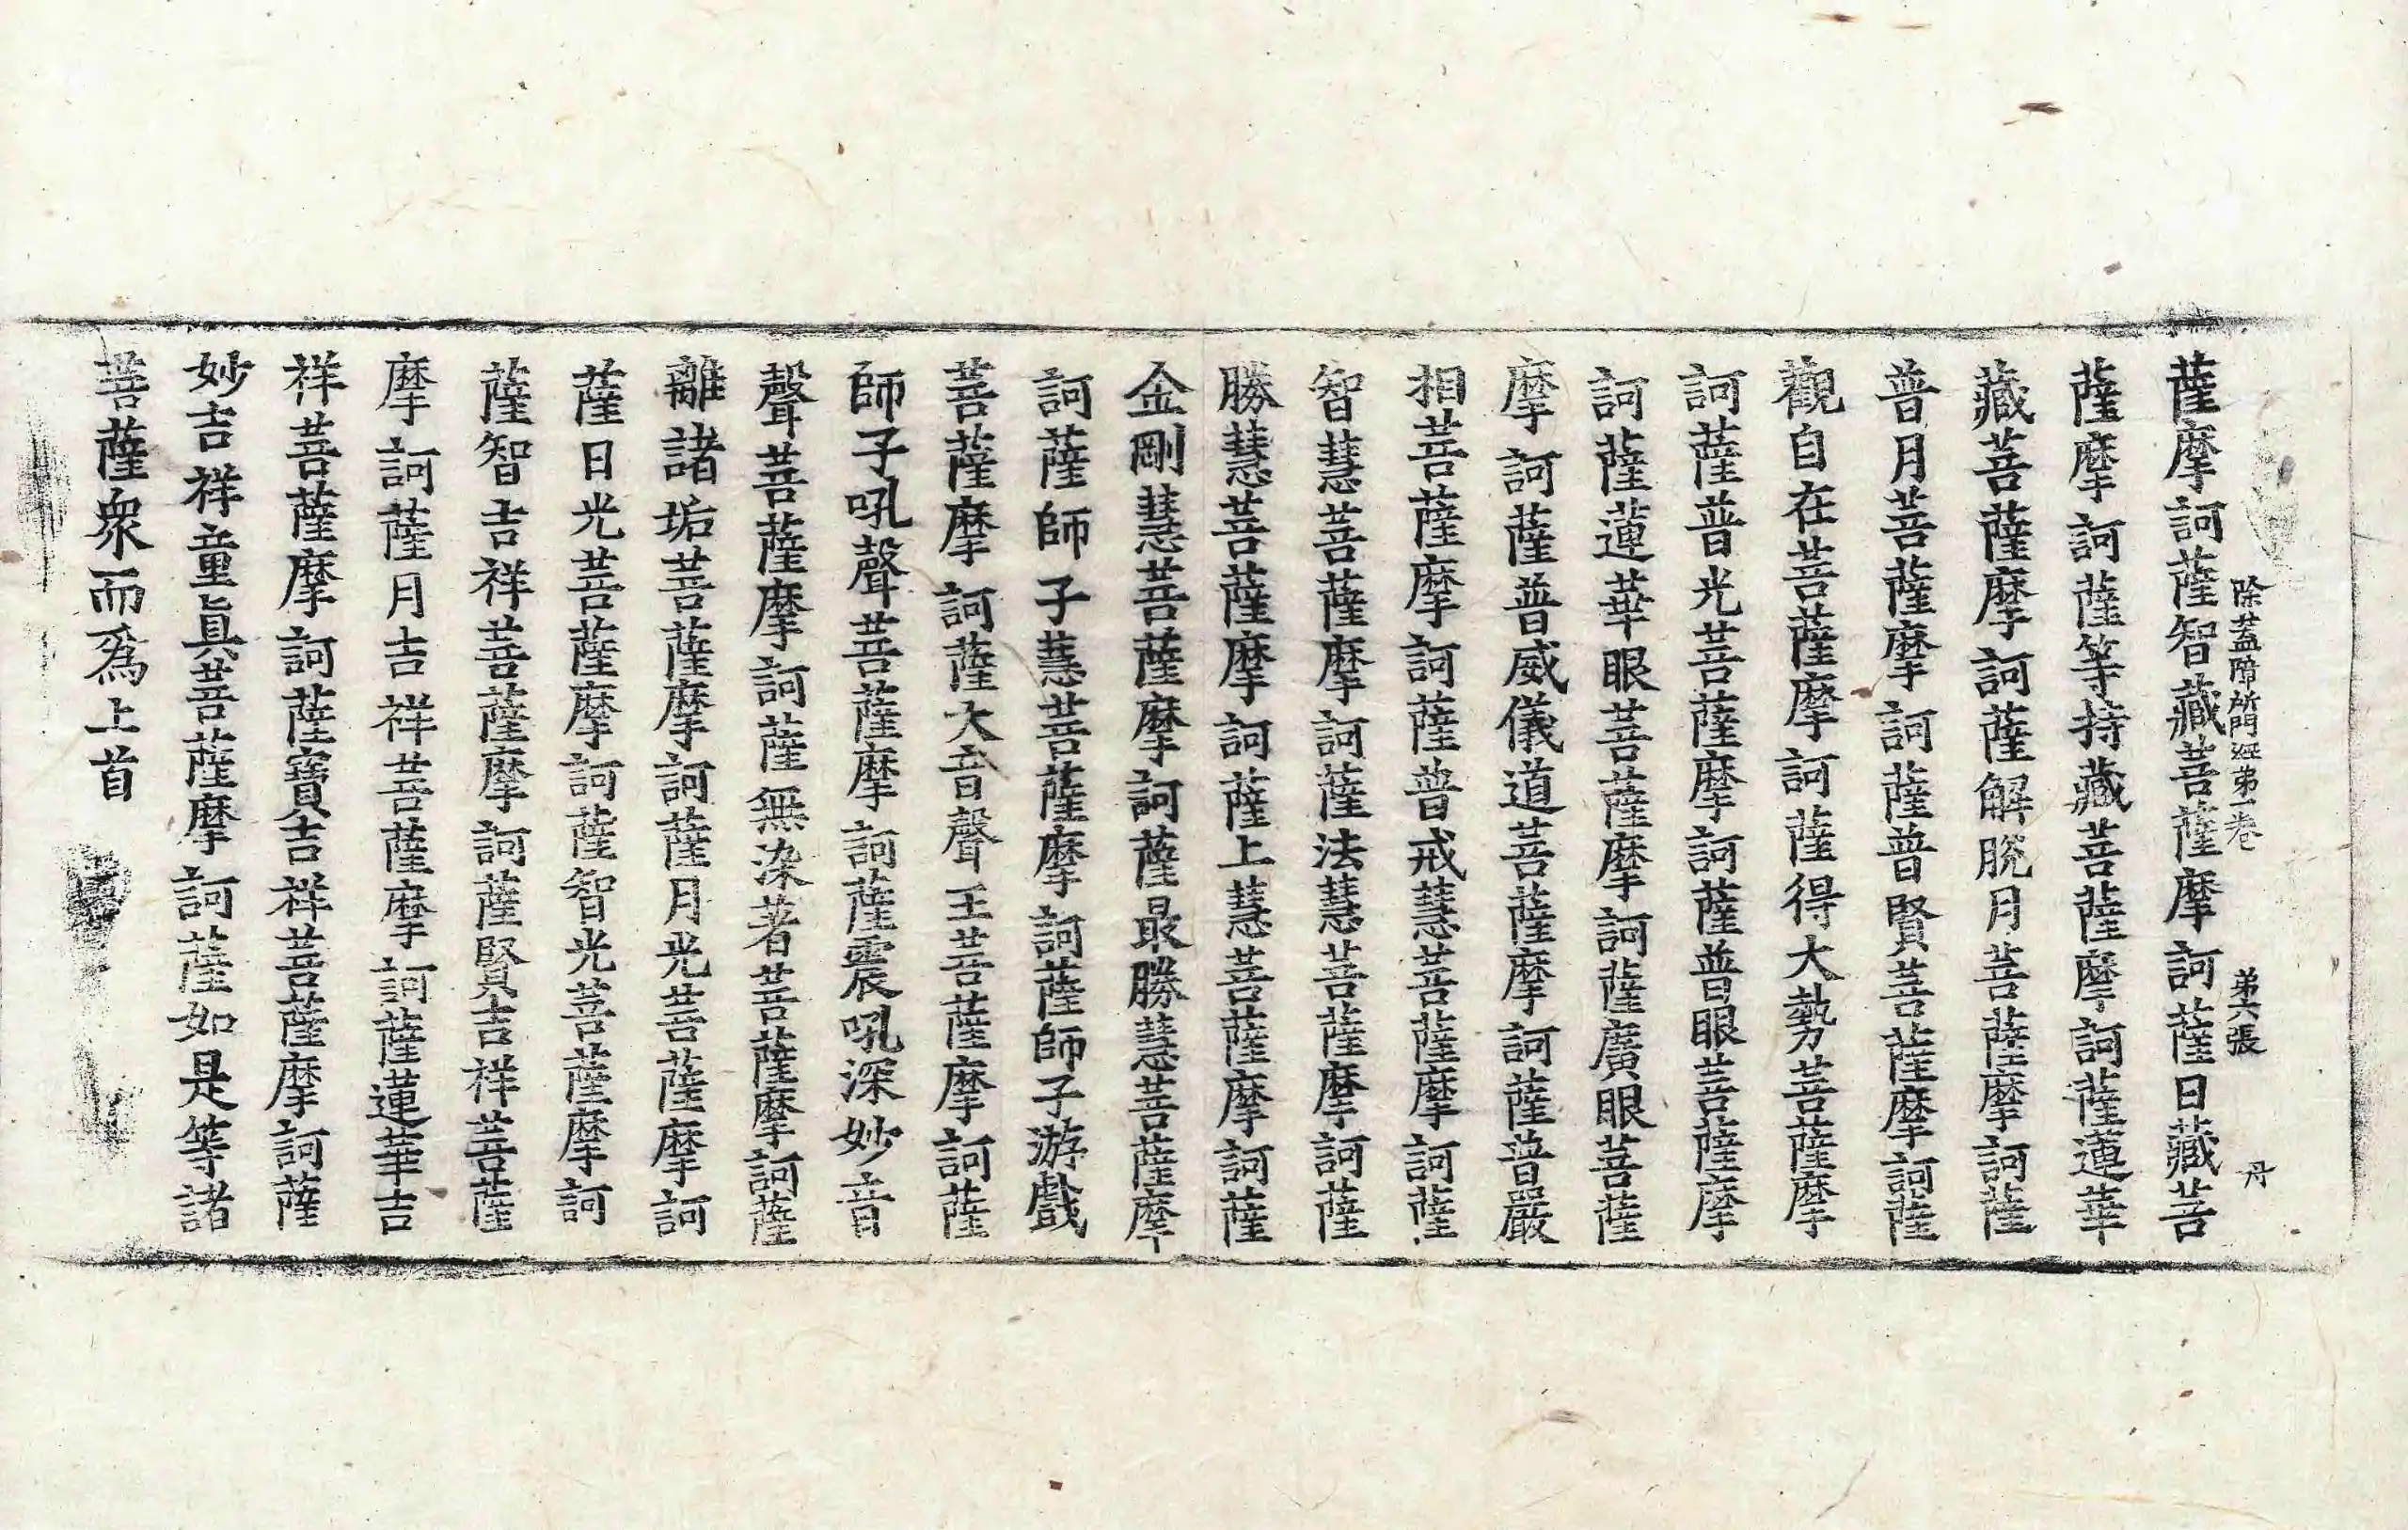 除盖障所問經第一卷　第六張　丹
薩摩訶薩智藏菩薩摩訶薩日藏菩
薩摩訶薩等持藏菩薩摩訶薩蓮華
藏菩薩摩訶薩解脫月菩薩摩訶薩
普月菩薩摩訶薩普賢菩薩摩訶薩
觀自在菩薩摩訶薩得大勢菩薩摩
訶薩普光菩薩摩訶薩普眼菩薩摩
訶薩蓮華眼菩薩摩訶薩廣眼菩薩
摩訶薩普威儀道菩薩摩訶薩普嚴
相菩薩摩訶薩普戒慧菩薩摩訶薩
智慧菩薩摩訶薩法慧菩薩摩訶薩
勝慧菩薩摩訶薩上慧菩薩摩訶薩
金剛慧菩薩摩訶薩最勝慧菩薩摩
訶薩師子慧菩薩摩訶薩師子游戲
菩薩摩訶薩大音聲王菩薩摩訶薩
師子吼聲菩薩摩訶薩震吼深妙音
聲菩薩摩訶薩無染著菩薩摩訶薩
離諸垢菩薩摩訶薩月光菩薩摩訶
薩日光菩薩摩訶薩智光菩薩摩訶
薩智吉祥菩薩摩訶薩賢吉祥菩薩
摩訶薩月吉祥菩薩摩訶薩蓮華吉
祥菩薩摩訶薩寶吉祥菩薩摩訶薩
妙吉祥童眞菩薩摩訶薩如是等諸
菩薩衆而爲上首